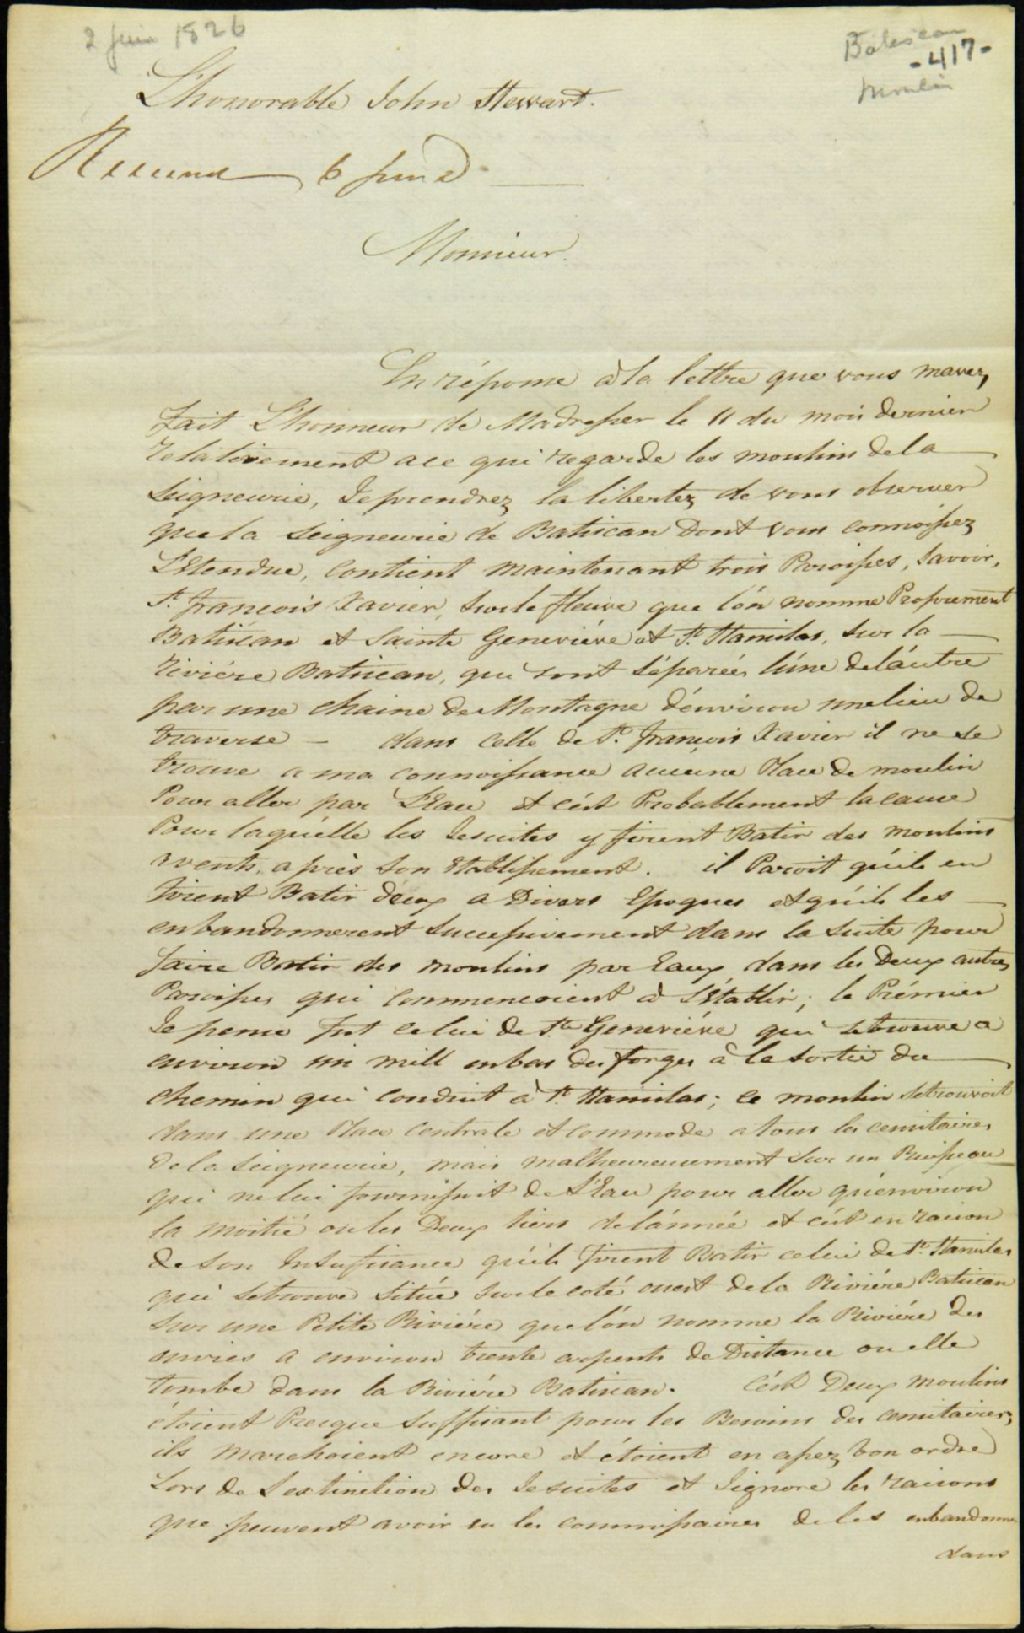 2 Juin 1826
Batiscan
-417-
Moulin
L'honorable John Stewart.
Received 6 June
Monsieur.
En réponse à la lettre que vous mavez
fait L'honneur de Madresser le 11 du mois dernier
Relativement a ce qui regarde les moulins de la
Seigneurie, Je prendrez la libertez de vous observer
que la Seigneurie de Batiscan Dont vous connoissez
L'Etendue, Contient maintenant trois Paroisses, Savoir,
St. françois Xavier, sur le fleuve que lón nomme Proprement
Batiscan et Sainte Geneviéve et St. Stanislas, sur la
Riviére Batiscan, qui sont séparées lúne delaútre
par une chaine de Montagne dénviron une lieu de
traverse — dans celle de St. françois Xavier il ne se
trouve a ma connoissance aucune Place de moulin
Pour aller par L'Eau et cést Probablement la cause
Pour laquélle les Jesuites y firent Batir des moulins
a vents, après son Etablissement. il Paroit quíls en
firent Batir deux a Divers Epoques et quíls les
enbandonnerent successivement dans la suite pour
faire Batir des moulins par Eaux dans les Deux autres
Paroisses qui commencoient à S'Etablir; le Prémier
Je pense fut celui de Ste Geneviéve qui se trouve a
environ un mill enbas des forges à la sortie du
chemin qui conduit à St. Stanislas; ce moulin se trouvoit
dans une Place centrale et commode a tous les censitaires
de la Seigneurie, mais malheureusement sur un Ruisseau
qui ne lui fournissoit de L'Eau pour aller quénviron
la moitié ou les Deux tiers delánnée et cést en raison
de son Insufisance quíls firent Batir celui de St. Stanislas
qui se trouve situé sur le coté ouest de la Riviére Batiscan
sur une Petite Riviére que lón nomme la Riviére des
envies a environ trente arpents de Distance ou elle
tombe dans la Riviére Batiscan. Cést Deux moulins
étoient Presque suffisant pour les Besoins des censitairez
ils marchoient encore et étoient en assez bon ordre
Lors de L'extinction des Jesuites et J'ignore les raisons
que peuvent avoir eu les commissaires de les enbandonner
dans